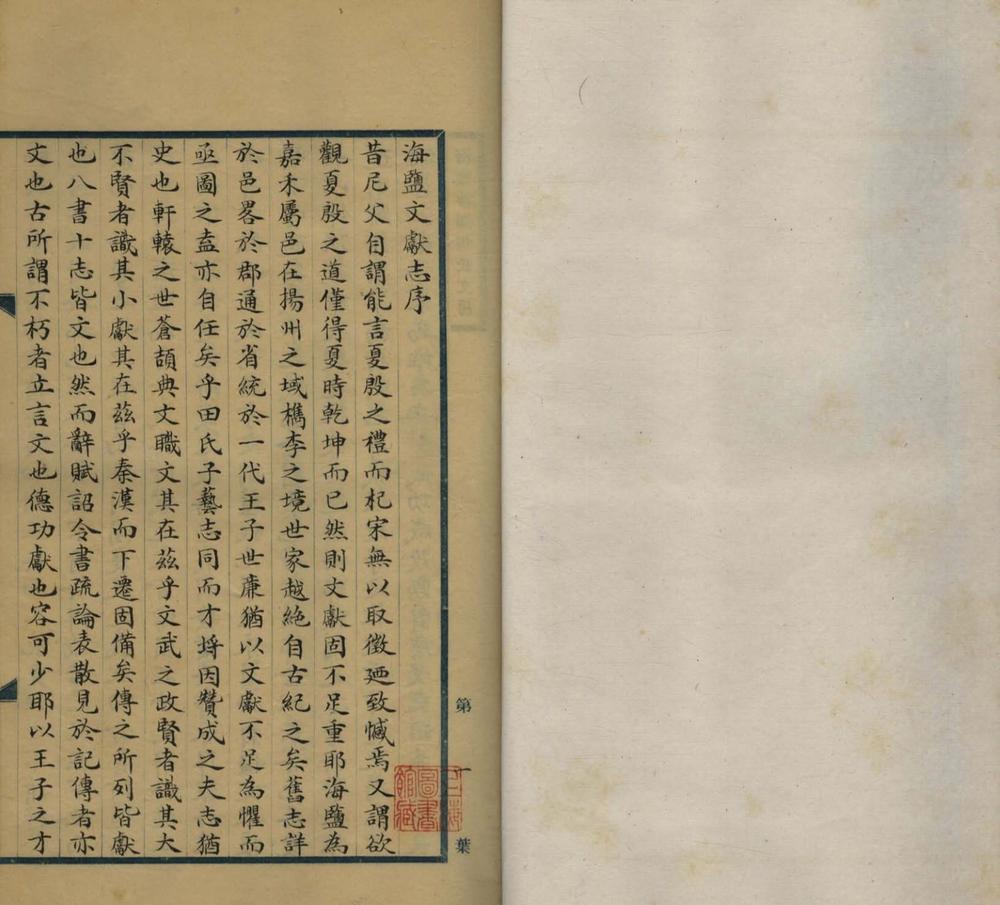 海鹽文獻志序
昔尼父自謂能言夏殷之禮而杞宋無以取徵廼致慽焉又謂欲
觀夏殷之道僅得夏時乾坤而已然則文獻固不足重耶海鹽為
嘉禾屬邑在揚州之域檇李之境世家越絶自古紀之矣舊志詳
於邑畧於郡通於省統於一代王子世亷猶以文獻不足為懼而
亟圖之葢亦自任矣乎田氏子藝志同而才埒因贊成之夫志猶
史也軒轅之世蒼頡典文職文其在茲乎文武之政賢者識其大
不賢者識其小獻其在茲乎秦漢而下遷固備矣傳之所列皆獻
也八書十志皆文也然而辭賦詔令書疏論表散見於記傳者亦
文也古所謂不朽者立言文也德功獻也容可少耶以王子之才
第一葉
圖書
館藏